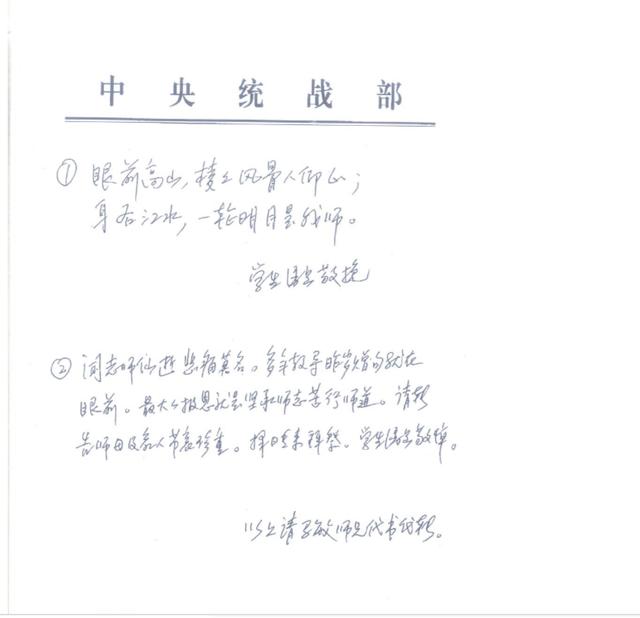 中央统战部
① 眼前高山，棱之风骨人仰止；
身后江水，一轮明月是我师。
学生 敬挽
② 闻志师仙逝 悲痛莫名。多年教导 昨岁 就在
眼前。最大的报恩就是坚秉师志苦行师道。请转
告师母及家人节哀珍重。择日来拜祭。学生 敬悼。
以上请 敏师兄代书代转。